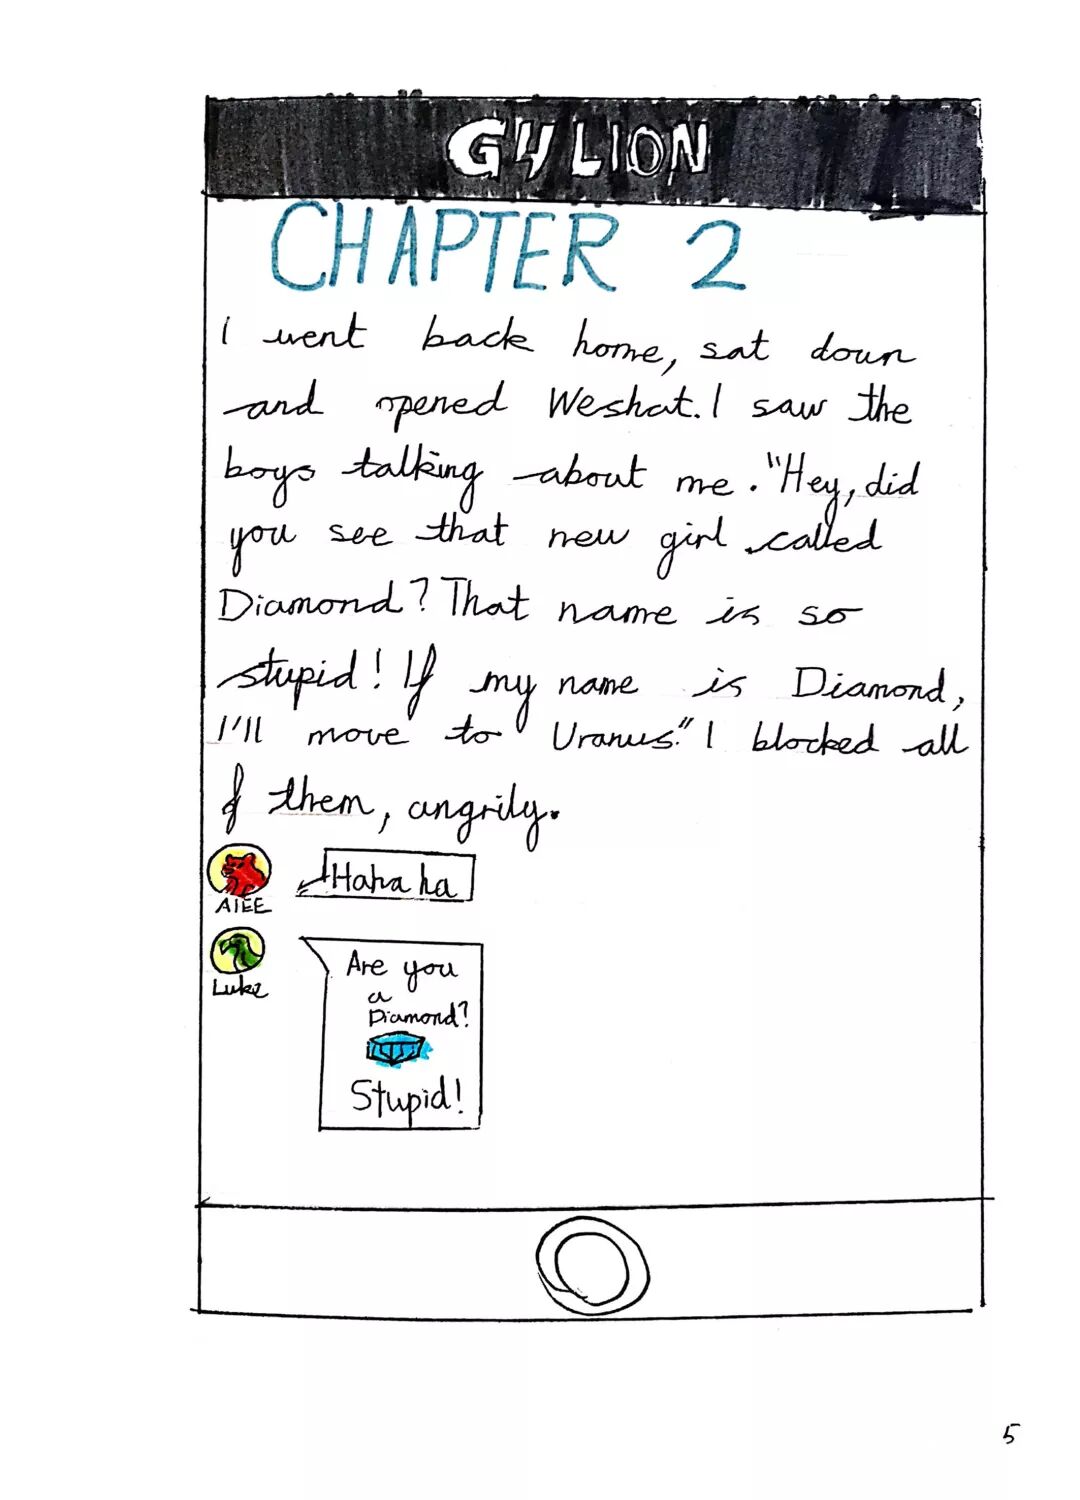 G4 LION
CHAPTER 2
I went back home, sat down
and opened Weshat. I saw the
boys talking about me. "Hey, did
you see that new girl called
Diamond? That name is so
stupid! If my name is Diamond,
I'll move to Uranus." I blocked all
of them, angrily.
Haha ha
AIEE
Are you
a
Diamond?
Stupid!
Luke
5